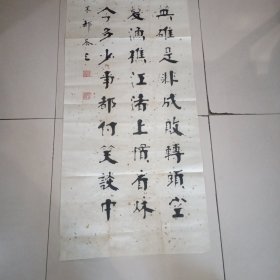 英雄是非成敗轉頭空
髮漁樵江渚上慣看秋
今多少事都付笑談中